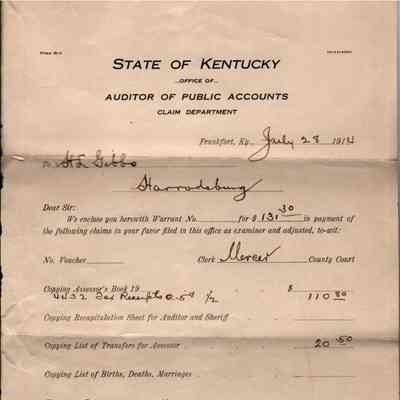 STATE OF KENTUCKY
OFFICE OF
AUDITOR OF PUBLIC ACCOUNTS
CLAIM DEPARTMENT
Frankfort, Ky., July 28 1914
Gibbs
Harrodsburg
Dear Sir:
We enclose you herewith Warrant No. for $ 131 30 in payment of
the following claims in your favor filed in this office as examiner and adjusted, to-wit:
No. Voucher Clerk Mercer County Court
Copying Assessor's Book 19 $
4432 Tax Receipts 110 80
Copying Recapitulation Sheet for Auditor and Sheriff
Copying List of Transfers for Assessor 20 50
Copying List of Births, Deaths, Marriages